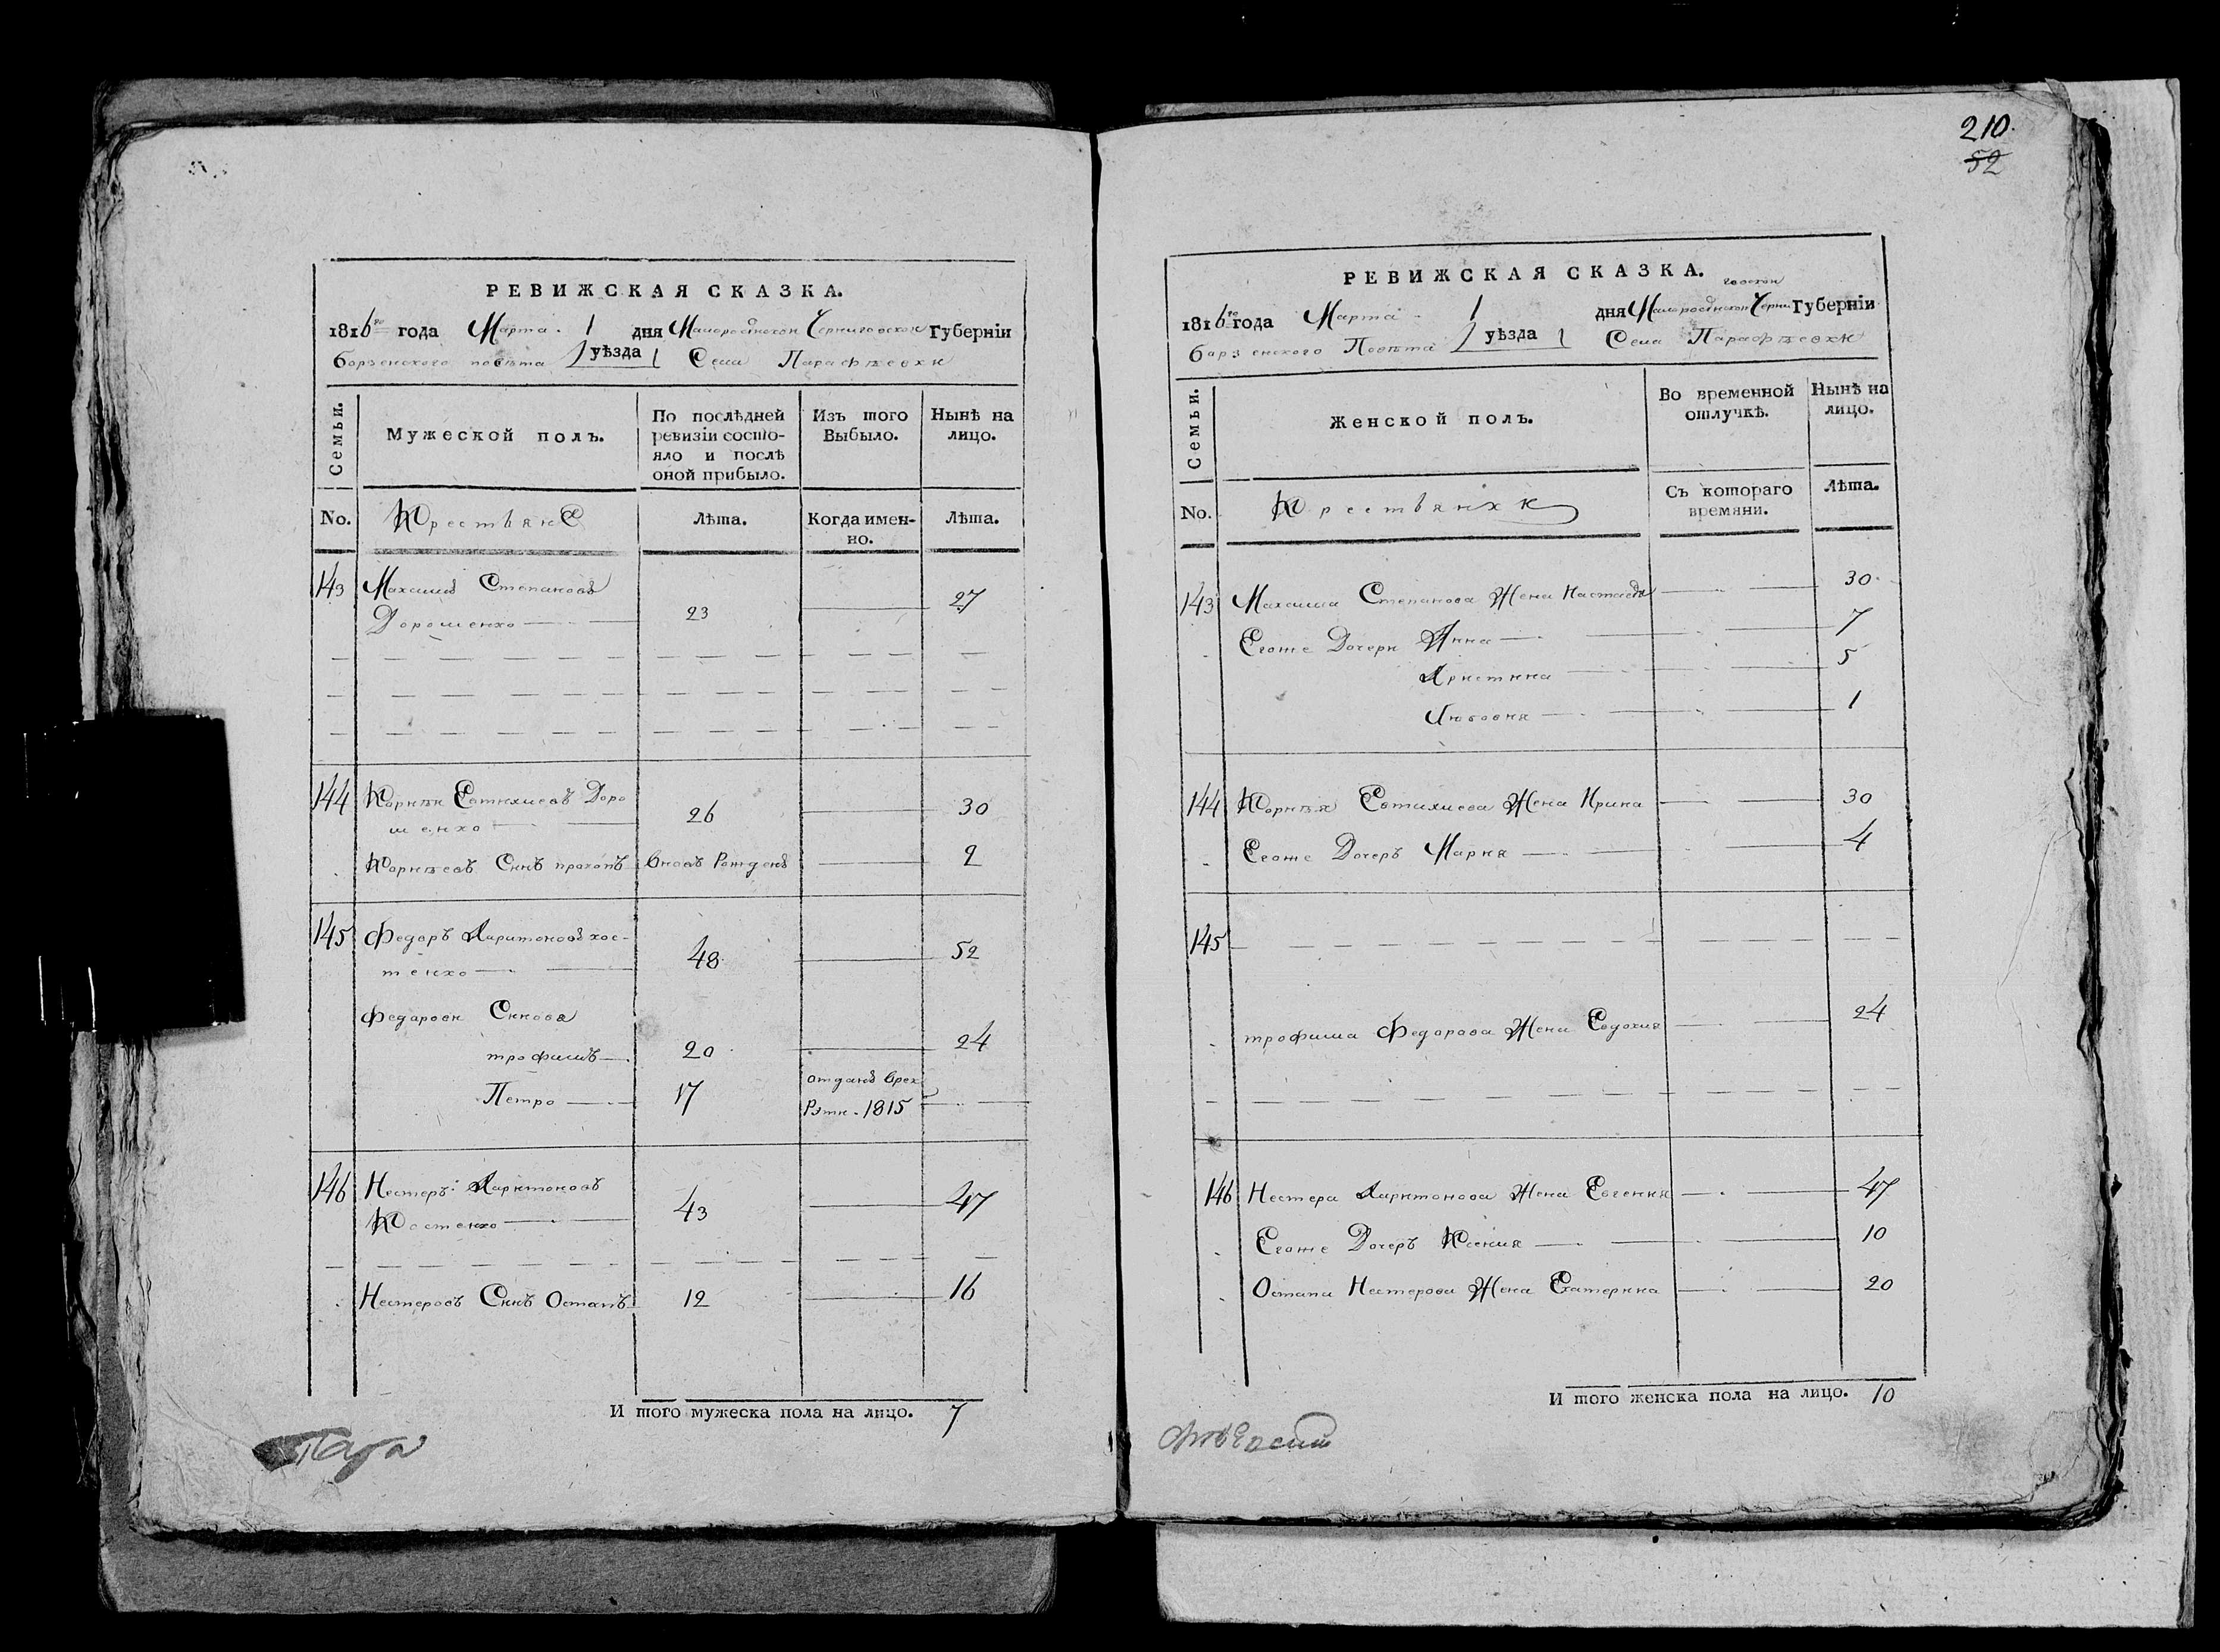 РЕВИЖСКАЯ СКАЗКА.
1816го года Марта 1 дня Малоросѣйской Черниговской Губернїи
борзенского повѣта уѣзда Села Парафѣевки
Семьи.
Мужеской полъ.
По послѣдней
ревизїи состо-
яло и послѣ
оной прибыло.
Изъ того
Выбыло.
Нынѣ на
лицо.
No.
Крестьяне
Лѣта.
Когда имен-
но.
Лѣта.
143 Максимъ Степановъ
Дорошенко 23 27
144 Корнѣй Евтихиевъ Доро
шенко 26 30
Корнѣевъ Синъ прокопъ вновь Рожденъ 2
145 Федоръ Харитоновъ кос-
тенко 48 52
Федоровы Синовя
трофимъ 20 24
Петро 17 отданъ врек
Рэти. 1815
146 Нестеръ Харитоновъ
Костенко 43 47
Нестеровъ Синъ Остапъ 12 16
И того мужеска пола на лицо. 7
210.
52
РЕВИЖСКАЯ СКАЗКА.
говской
1816го года Марта 1 дня Малоросѣйской Черни Губернїи
борзенского Повѣта уѣзда Села Парафѣевки
Семьи.
Женской полъ.
Во временной
отлучкѣ.
Нынѣ на
лицо.
No.
Крестьянки
Съ котораго
времяни.
Лѣта.
143 Максима Степанова Жена Настасья 30
Егоже Дочери Анна 7
Христина 5
Любовия 1
144 Корнѣя Евтихиева Жена Ирина 30
Егоже Дочеръ Мария 4
145
трофима Федорова Жена Евдокия 24
146 Нестера Харитонова Жена Евгения 47
Егоже Дочеръ Ксения 10
Остапа Нестерова Жена Екатерина 20
И того женска пола на лицо. 10